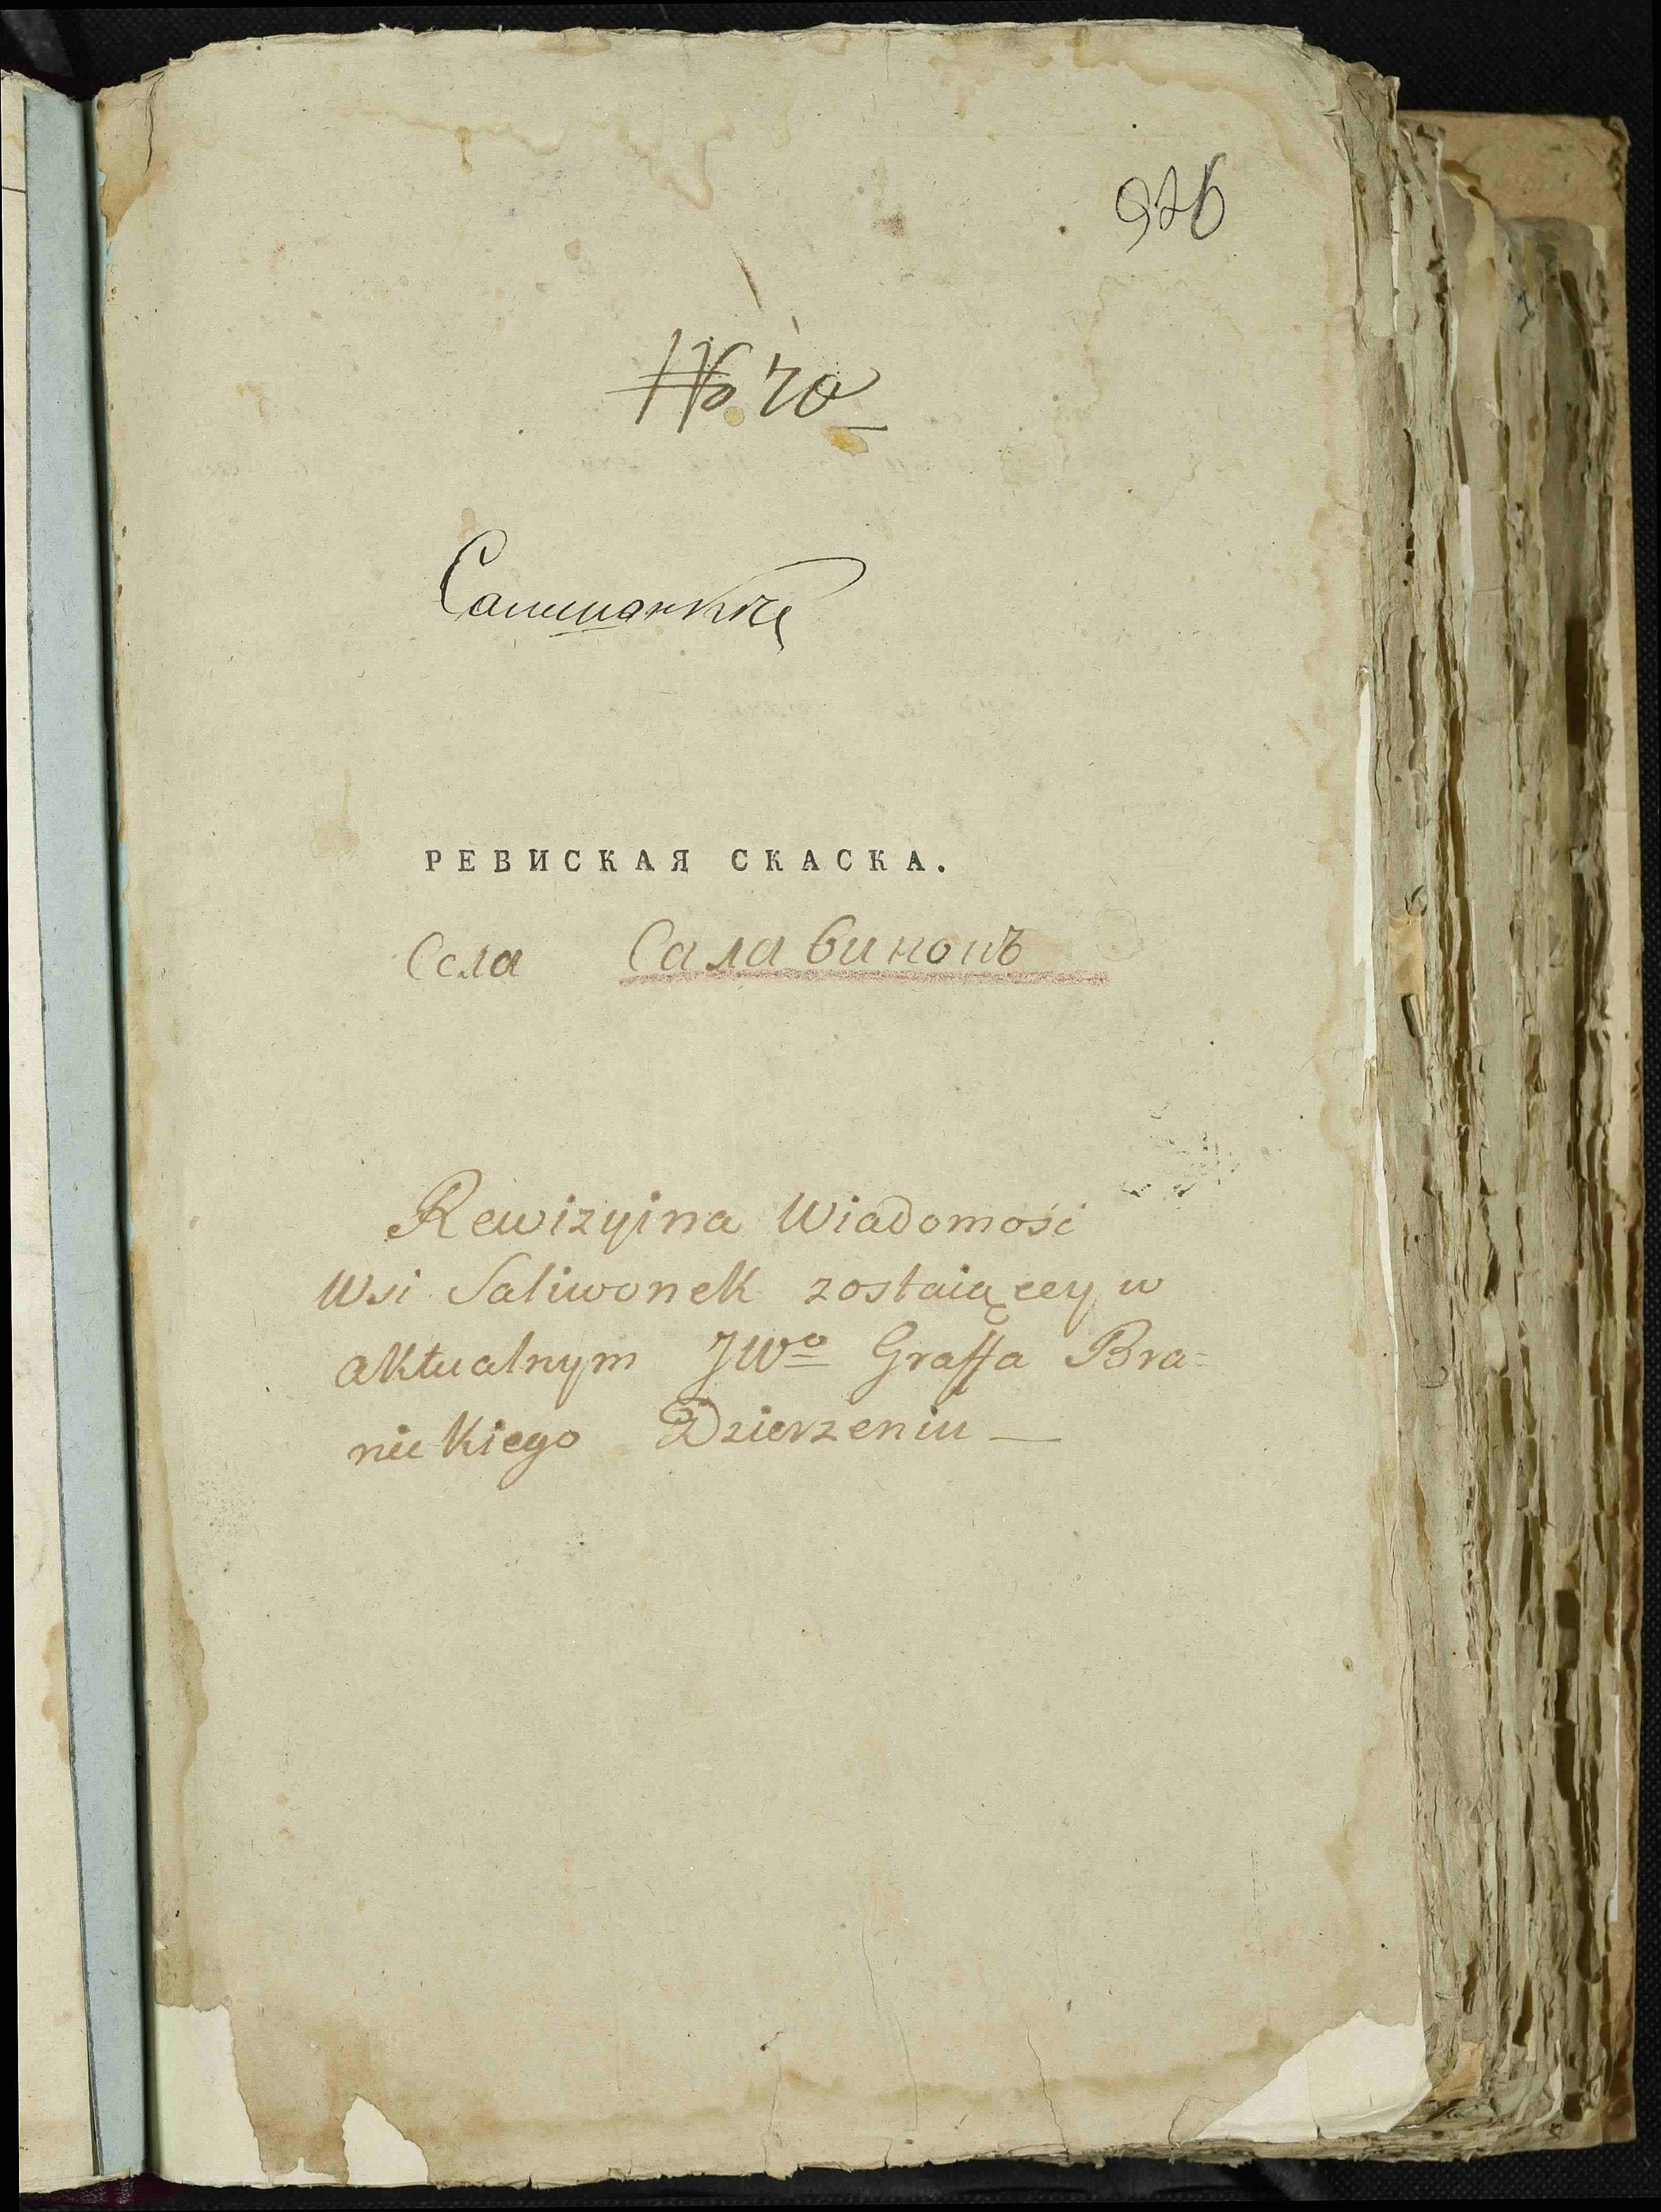 926
№ 70
РЕВИСКАЯ СКАСКА.
Села Салавинокъ
Rewizyina Wiadomość
Wsi Saliwonek zostaiącey w
aktualnym JWº Graffa Bra=
nickiego Dzierzeniu —